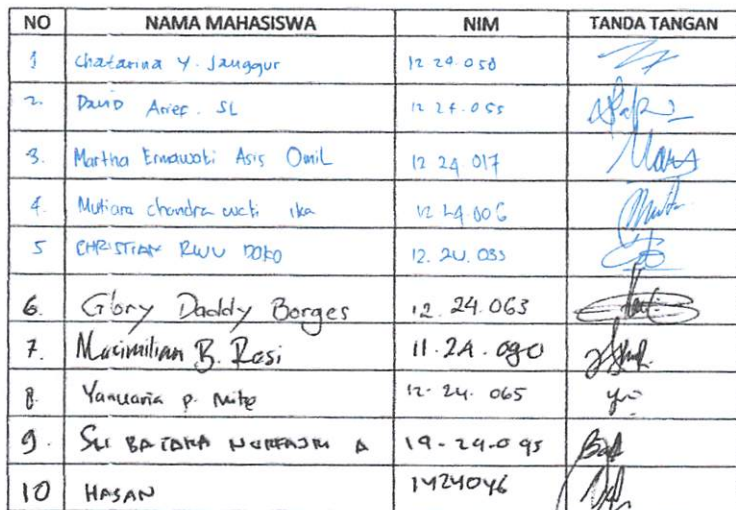 NO NAMA MAHASISWA NIM TANDA TANGAN
1 Chatarina Y. Janggur 12 24.050
2. David Arief. SL 12 24.055
3. Martha Ernawati Asis Omil 12 24 017
4. Mutiara chandra wati ika 12 24 006
5 CHRISTIAN RIWU DOKO 12.24.033
6. Glory Daddy Borges 12.24.063
7. Maximilian B. Rasi 11.24.090
8. Yanuaria P. Mite 12-24.065
9. 19-24-095
10 HASAN 1424046